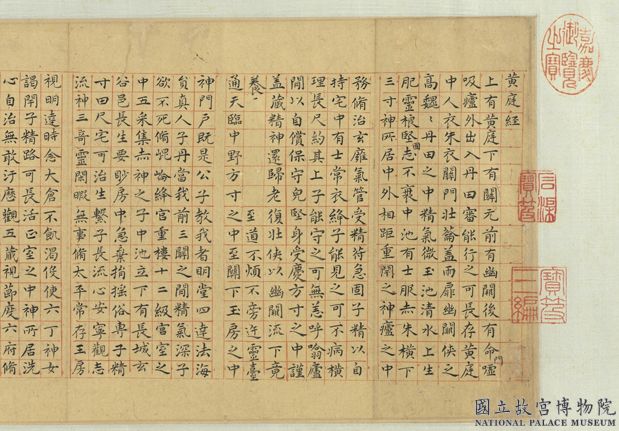 黃庭経
上有黃庭下有關元前有幽闕後有命嚧
吸廬外出入丹田審能行之可長存黃庭
中人衣朱衣關門壯蘥蓋兩扉幽闕俠之
高魏〻丹田之中精氣微玉池清水上生
肥靈根堅志不衰中池有士服赤朱橫下
三寸神所居中外相距重閉之神廬之中
務脩治玄廱氣管受精符急固子精以自
持宅中有士常衣絳子能見之可不病橫
理長尺約其上子能守之可無恙呼噏廬
間以自償保守完堅身受慶方寸之中謹
蓋藏精神還歸老復壯俠以幽闕流下竟
養一 至道不煩不旁迕靈臺
通天臨中野方寸之中至關下玉房之中
神門戶既是公子教我者明堂四達法海
員真人子丹當我前三關之間精氣深子
欲不死脩崐崘絳宮重樓十二級宮室之
中五采集赤神之子中池立下有長城玄
谷邑長生要眇房中急棄捐搖俗專子精
寸田尺宅可治生繫子長流心安寧觀志
流神三奇靈閑暇無事脩太平常存玉房
視明達時念大倉不飢渴役使六丁神女
謁閉子精路可長活正室之中神所居洗
心自治無敢汙歷觀五藏視節度六府脩
嘉慶御覽之寶
石渠寶笈
寶笈三編
國立故宮博物院
NATIONAL PALACE MUSEUM